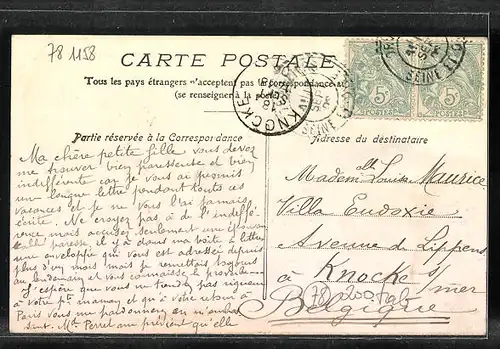 78 1158
CARTE POSTALE
Tous les pays étrangers n'acceptent pas la correspondance au
(se renseigner à la poste
KNOCKE
SEINE ET O
5c 5c
POSTES POSTES
Partie réservée à la Correspondance
Adresse du destinataire
Ma chère petite fille vous devez
me trouver bien paresseuse et bien
indifférente car je vous ai promis
une longue lettre pendant toutes ces
vacances et je ne vous l'ai jamais
écrite. Ne croyez pas à de l'indiffé-
rence mais accusez seulement une
paresse, il y a dans ma boîte à lettre
une enveloppe qui vous est adressée depuis
plus d'un mois mais je remettais toujours
au lendemain et vous connaissez le proverbe
J'espère que vous ne tiendrez pas rigueur
à votre pte maman et qu'à votre retour à
Paris vous me pardonnerez en m'embras
sant. Me Perrel me prévient qu'elle
Mademelle Louise Maurice
Villa Eudoxie
Avenue de Lippens
à Knocke s/mer
Belgique